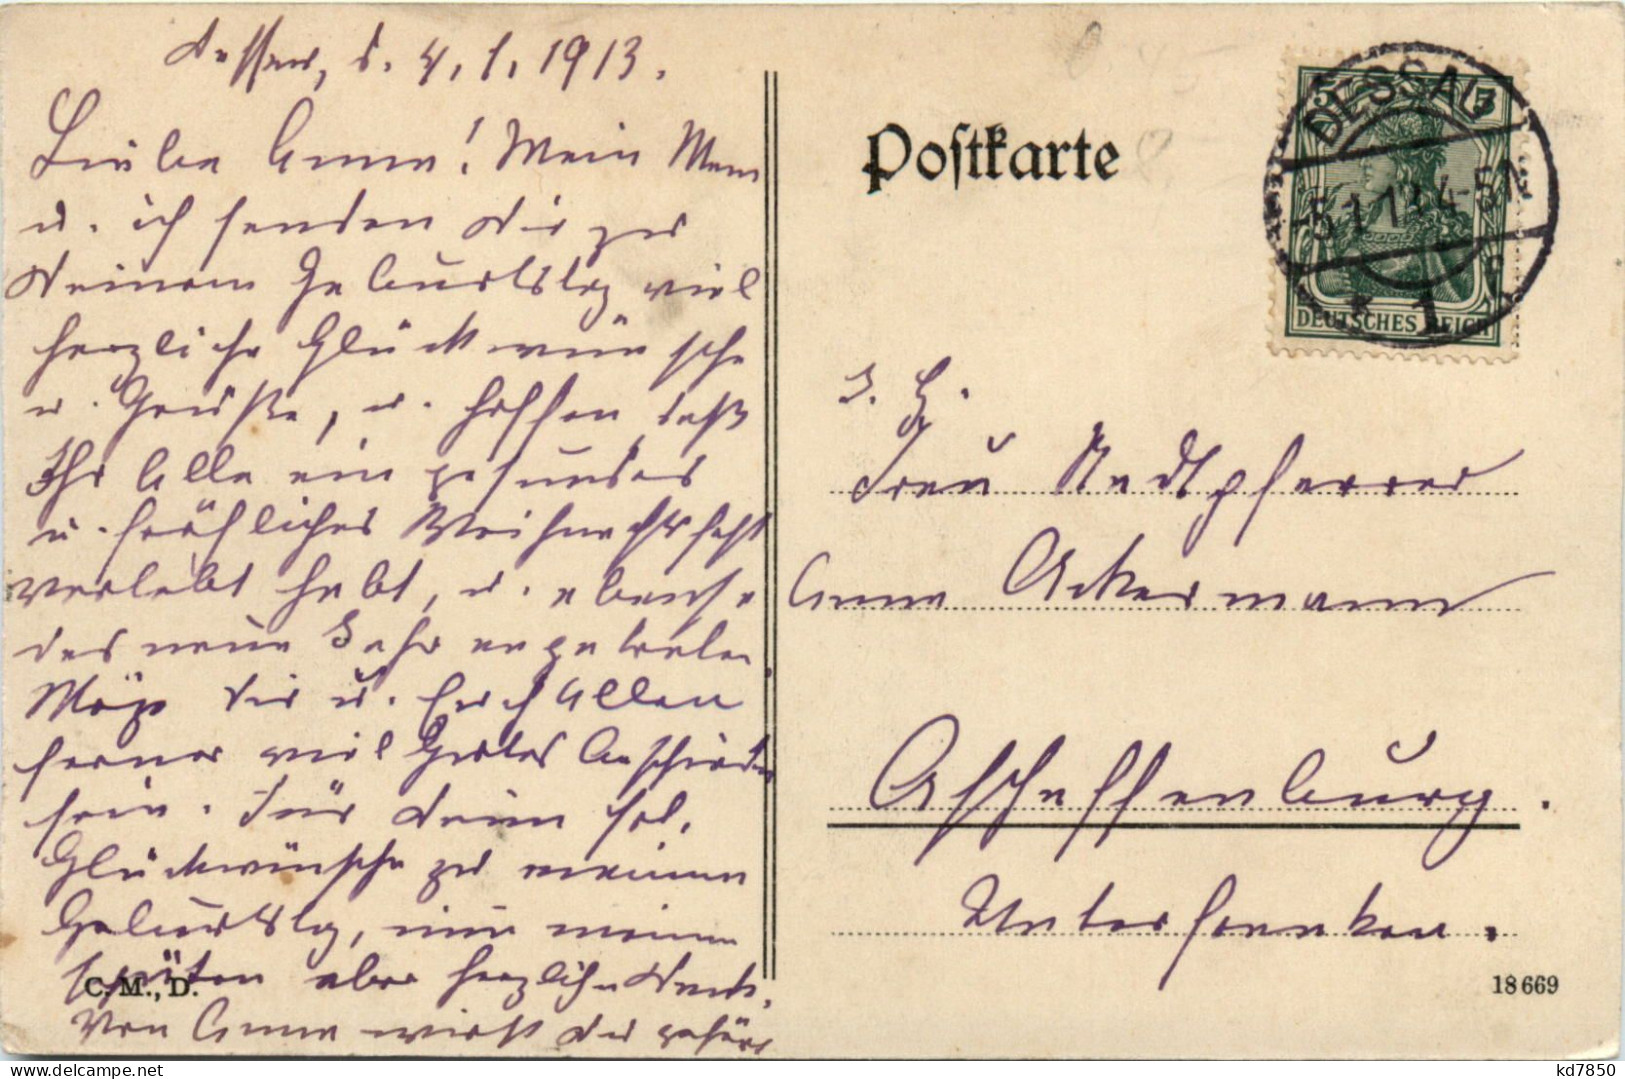 Dessau, d. 4. 1. 1913.
Liebe Anna! Mein Mann
u. ich senden Dir zu
Deinem Geburtstag viel
herzliche Glückwünsche
u. Grüße, u. hoffen, daß
Ihr Alle ein gesundes
u. fröhliches Weihnachtsfest
verlebt habt, u. ebenso
das neue Jahr angetreten.
Möge Dir u. Euch Allen
ferner viel Gutes beschieden
sein. Für Deine
Glückwünsche zu meinem
Geburtstag, nun meinen
späten aber herzlichen Dank.
Von Anna wirst Du
C. M., D.
Postkarte
DESSAU
5.1.13.4-5N
* 1
DEUTSCHES REICH
S. H.
Frau Stadtpfarrer
Anna Ackermann
Aschaffenburg.
Unterfranken.
18669
kd7850